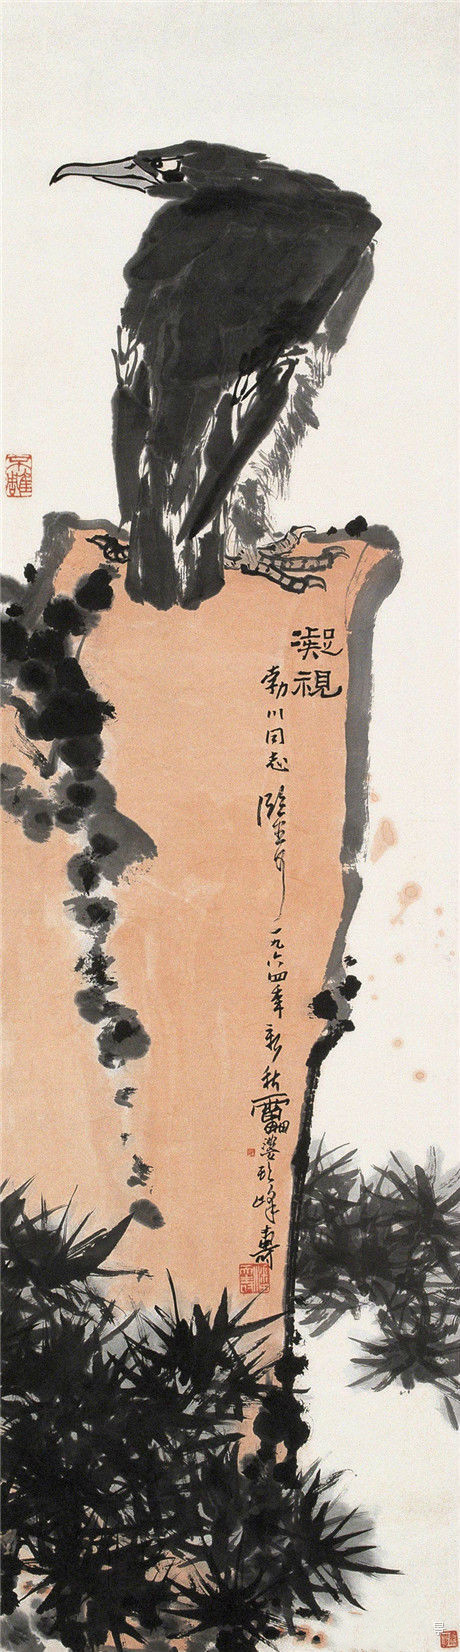 凝視
勃川同志 一九六四年新秋雷婆頭峰壽
不雕